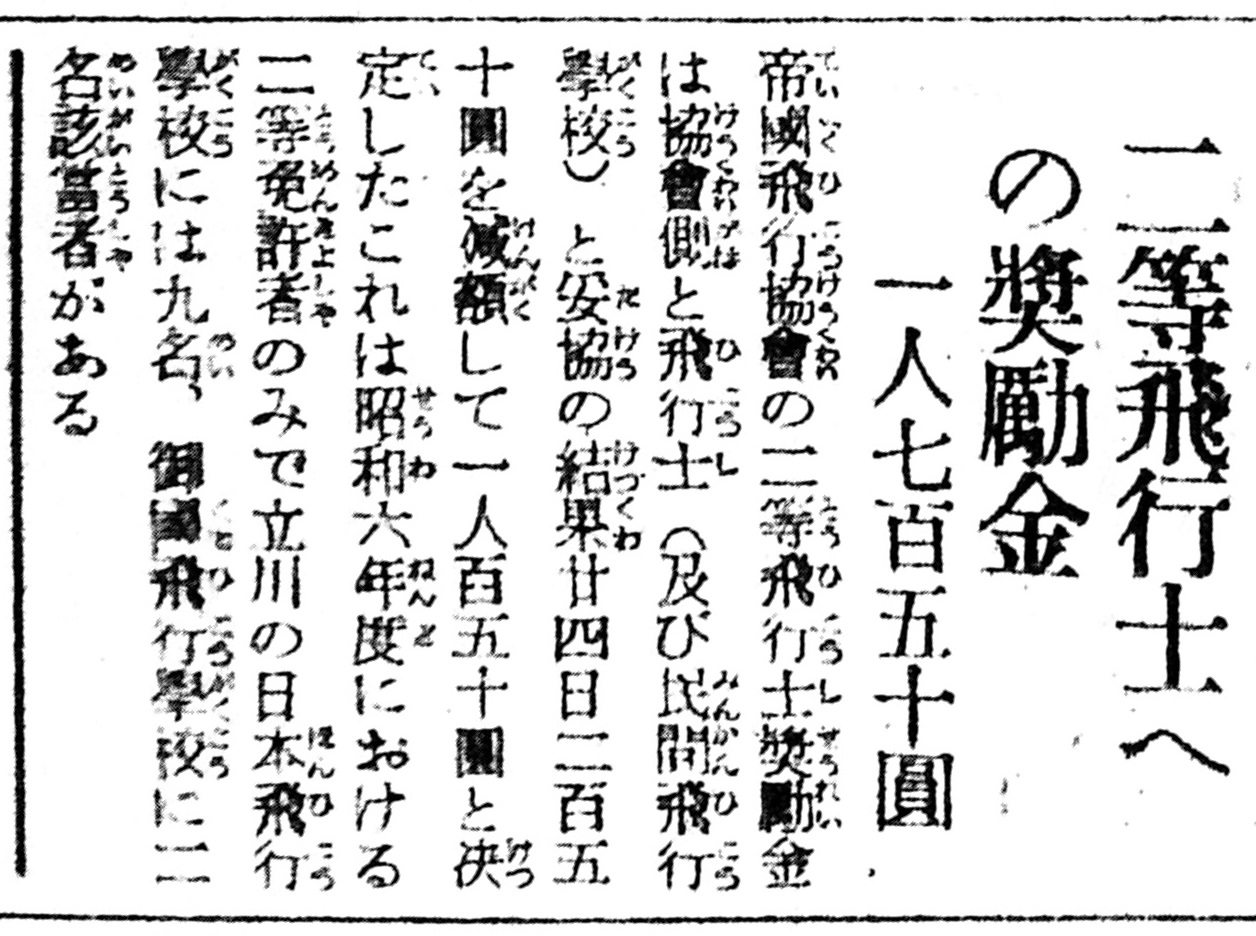 二等飛行士へ
の奬勵金
一人七百五十圓
帝國飛行協會の二等飛行士奬勵金
は協會側と飛行士（及び民間飛行
學校）と妥協の結果廿四日二百五
十圓を減額して一人百五十圓と决
定したこれは昭和六年度における
二等免許者のみで立川の日本飛行
學校には九名、御國飛行學校に二
名該當者がある